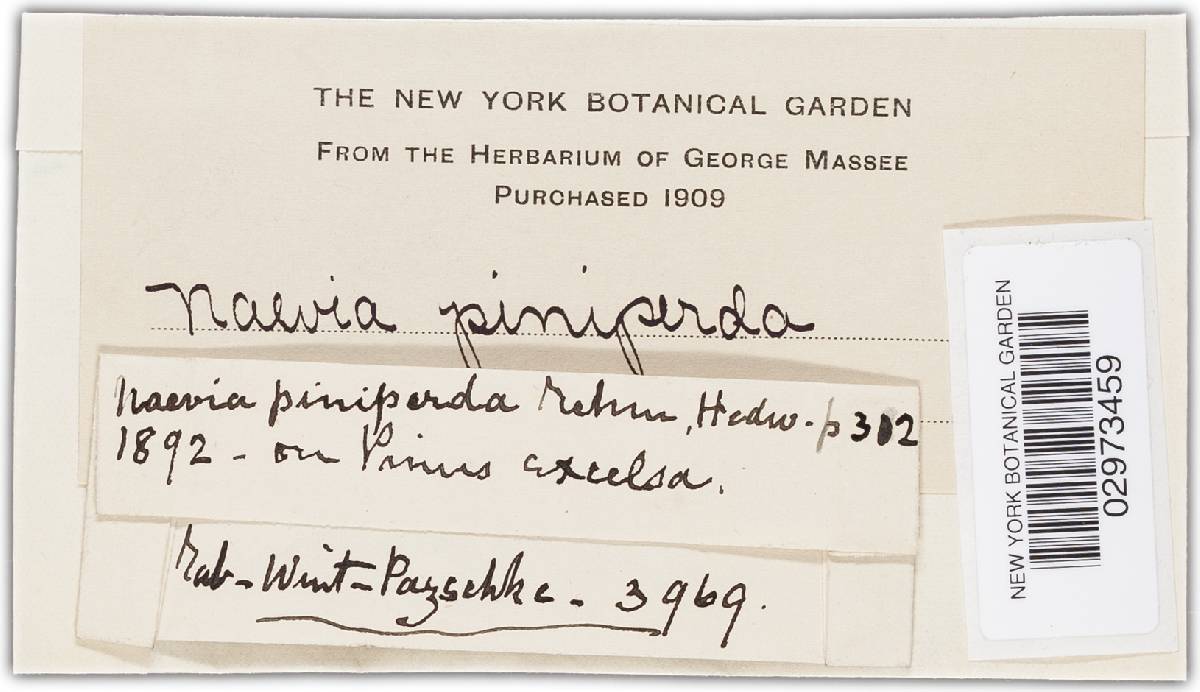 THE NEW YORK BOTANICAL GARDEN
FROM THE HERBARIUM OF GEORGE MASSEE
PURCHASED 1909
Naevia piniperda
Naevia piniperda Rehm, Hedw. p 302
1892 - on Pinus excelsa.
Rab-Wint-Pazschke - 3969.
NEW YORK BOTANICAL GARDEN
02973459